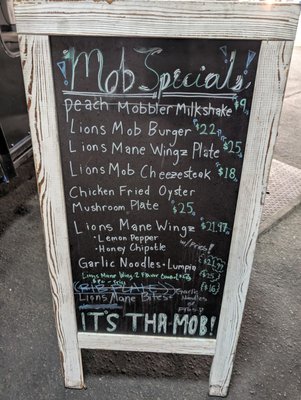 Mob Specials
peach Mobbler Milkshake $9
Lions Mob Burger $22
Lions Mane Wingz Plate $25
Lions Mob Cheezesteak $18
Chicken Fried Oyster
Mushroom Plate $25
Lions Mane Wingz $21.97
• Lemon Pepper w/Fries!
• Honey Chipotle
Garlic Noodles • Lumpia
Lions Mane Wing 2 Flavor Combo
Lions Mane Bites
Garlic
Noodles
$16
IT'S THA MOB!